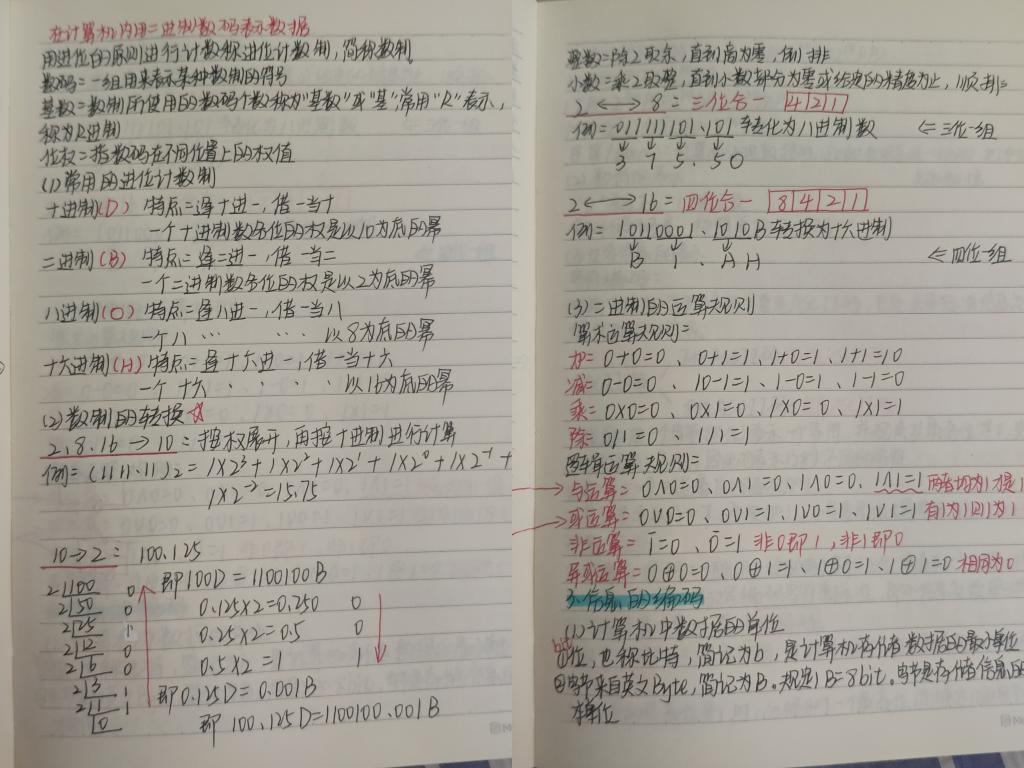 在计算机内用二进制数码表示数据
用进位的原则进行计数称进位计数制,简称数制。
数码:一组用来表示某种数制的符号
基数:数制所使用的数码个数称为“基数”或“基”常用“R”表示,
称为R进制
位权:指数码在不同位置上的权值
(1)常用的进位计数制
十进制(D) 特点:逢十进一,借一当十
一个十进制数各位的权是以10为底的幂
二进制(B) 特点:逢二进一,借一当二
一个二进制数各位的权是以2为底的幂
八进制(O) 特点:逢八进一,借一当八
一个八 ··· ··· 以8为底的幂
十六进制(H) 特点:逢十六进一,借一当十六
一个十六 · · · · 以16为底的幂
(2)数制的转换☆
2、8、16→10:按权展开,再按十进制进行计算
例:(1111.11)2=1×2³+1×2²+1×2¹+1×2⁰+1×2⁻¹+
1×2⁻²=15.75
10→2: 100.125
2 100 0 即100D=1100100B
2 50 0 0.125×2=0.250 0
2 25 1 0.25×2=0.5 0
2 12 0 0.5×2=1 1
2 6 0
2 3 1 即0.125D=0.001B
2 1 1
0 即 100.125D=1100100.001B
整数:除2取余,直到商为零,倒排
小数:乘2取整,直到小数部分为零或给定的精度为止,顺排
2 ←→ 8:三位合一 4 2 1
例:01111101.101转化为八进制数 ⇐三位一组
3 7 5 . 5 O
2 ←→ 16:四位合一 8 4 2 1
例:10110001.1010B转换为十六进制
B 1 . A H ⇐四位一组
(3)二进制的运算规则
算术运算规则:
加:0+0=0、0+1=1、1+0=1、1+1=10
减:0-0=0、10-1=1、1-0=1、1-1=0
乘:0×0=0、0×1=0、1×0=0、1×1=1
除:0/1=0、1/1=1
逻辑运算规则:
与运算:0∧0=0、0∧1=0、1∧0=0、1∧1=1 两者均为1才是1
或运算:0∨0=0、0∨1=1、1∨0=1、1∨1=1 有1为1则为1
非运算:1̄=0、0̄=1 非0即1,非1即0
异或运算:0⊕0=0、0⊕1=1、1⊕0=1、1⊕1=0 相同为0
3.信息的编码
(1)计算机中数据的单位
bit
①位,也称比特,简记为b,是计算机存储数据的最小单位
②字节来自英文Byte,简记为B。规定1B=8bit。字节是存储信息的
本单位